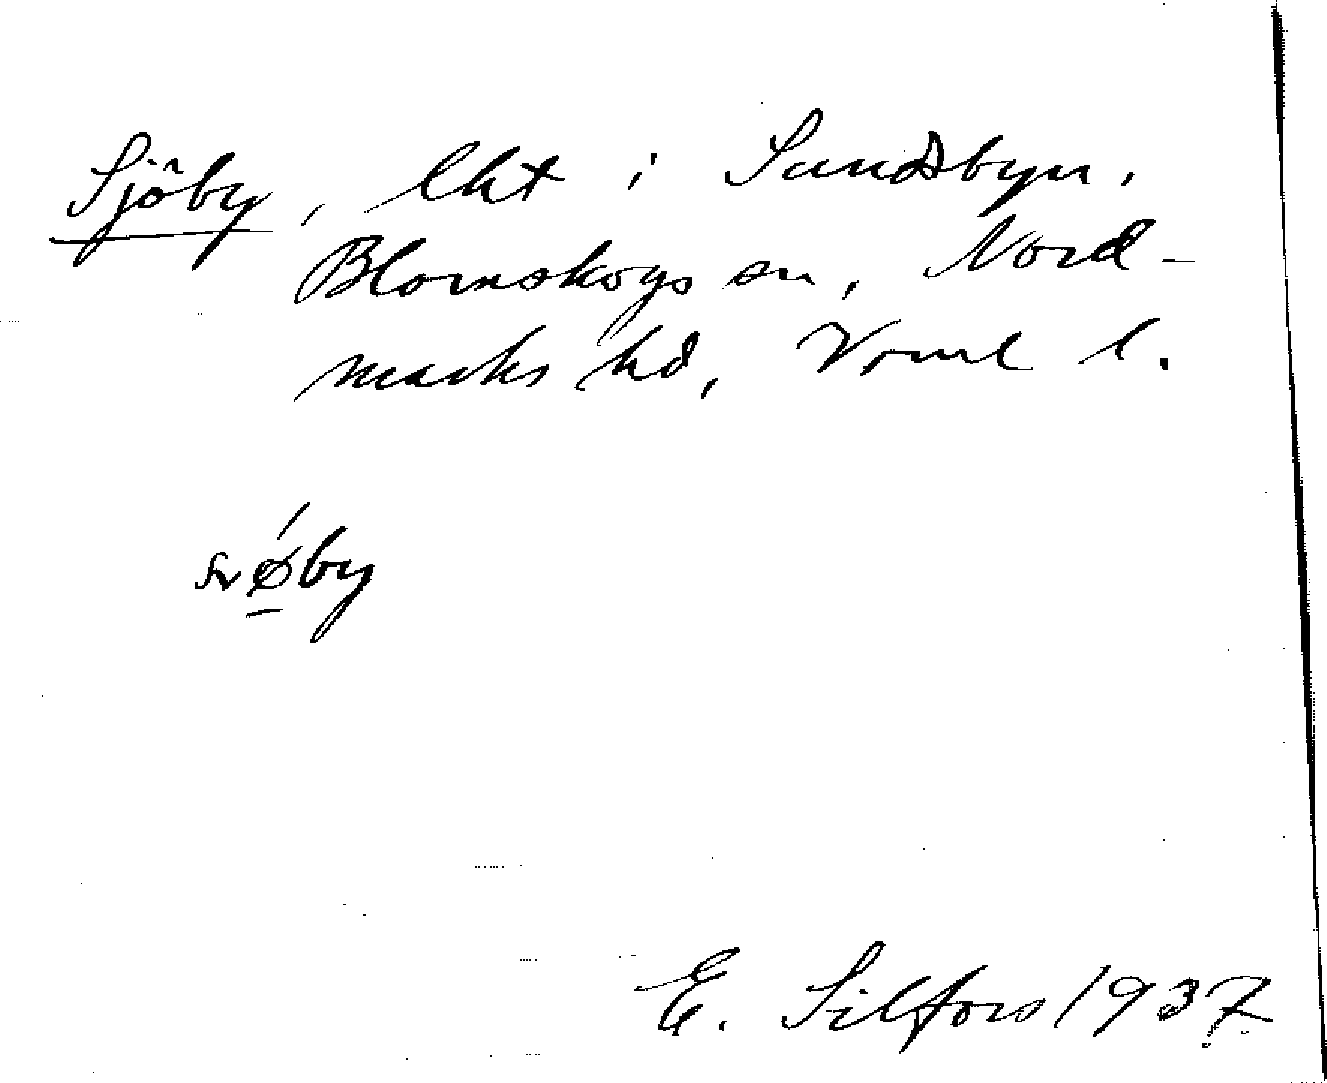 Sjöby, lht i Sundsbyn,
Blomskogs sn, Nord-
marks hd, Vrml l.
E. Silfors 1937